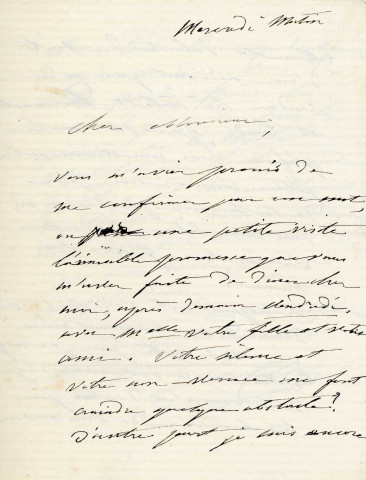 Mercredi Matin
Cher Monsieur,
Vous m'aviez promis de
me confirmer par un mot,
ou une petite visite
l'aimable promesse que vous
m'aviez faite de diner chez
moi, après demain vendredi,
avec Melle votre fille et votre
ami. Votre silence et
votre non venue me font
craindre quelque obstacle?
D'autre part je suis encore